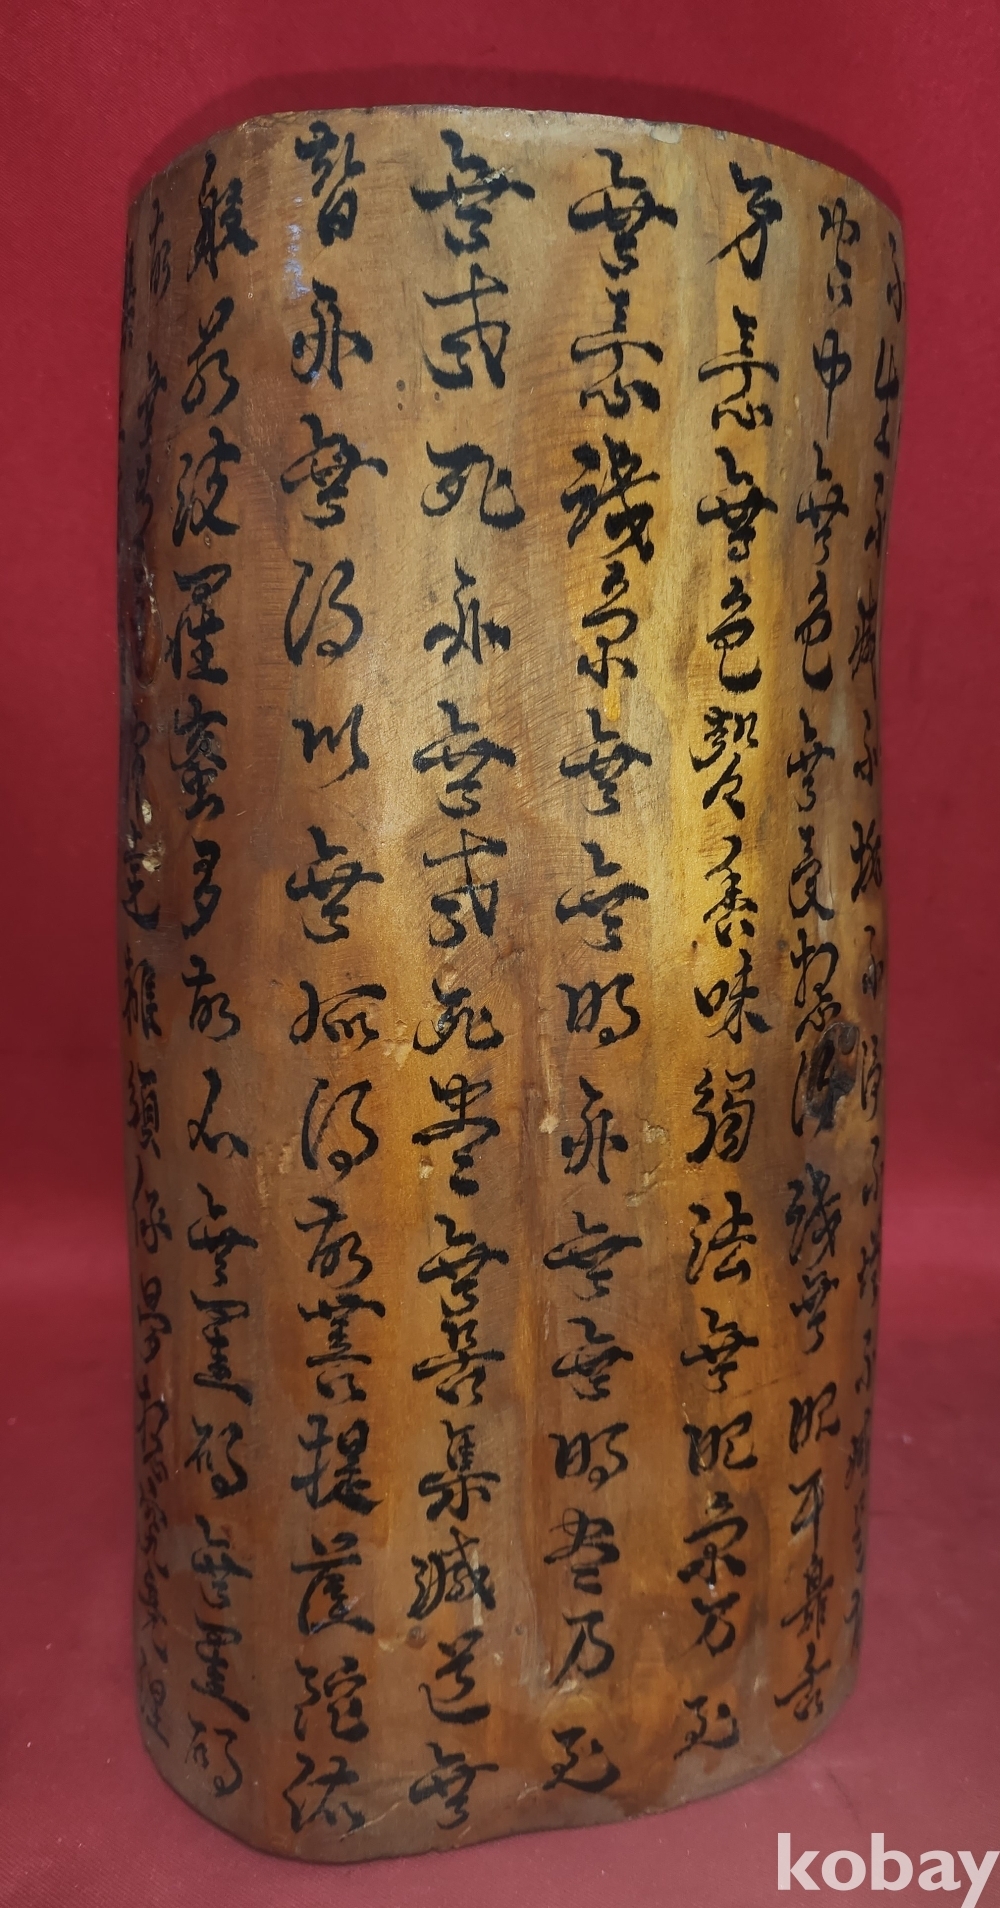 不生不滅不垢不淨不增不減是故
空中無色無受想行識無眼耳鼻舌
身意無色聲香味觸法無眼界乃至
無意識界無無明亦無無明盡乃至
無老死亦無老死盡無苦集滅道無
智亦無得以無所得故菩提薩陀依
般若波羅蜜多故心無罣礙無罣礙
故無有恐怖遠離顛倒夢想究竟涅
kobay